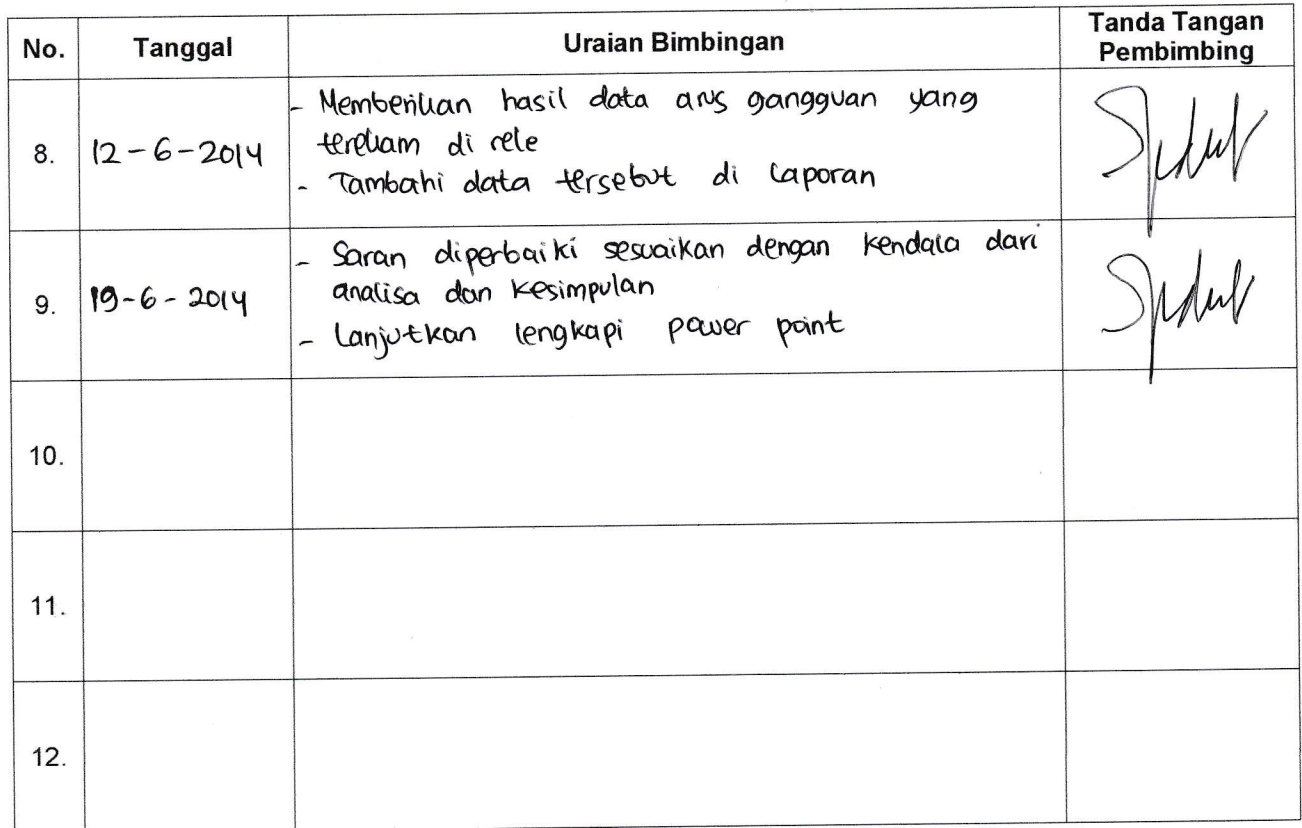 No. Tanggal Uraian Bimbingan Tanda Tangan
Pembimbing
8. 12-6-2014
- Memberikan hasil data arus gangguan yang
terekam di rele
- Tambahi data tersebut di laporan
9. 19-6-2014
- Saran diperbaiki sesuaikan dengan kendala dari
analisa dan kesimpulan
- Lanjutkan lengkapi power point
10.
11.
12.